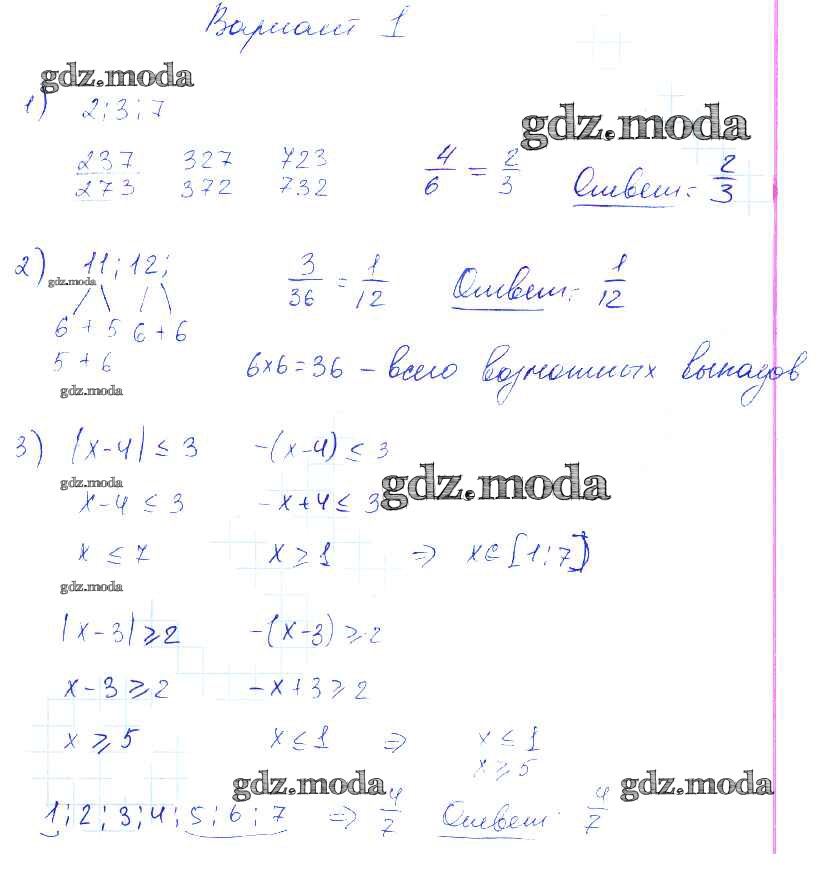 Вариант 1
gdz.moda
1) 2; 3; 7
gdz.moda
237 327 723
273 372 732
4/6 = 2/3 Ответ: 2/3
2) 11; 12;
gdz.moda
6 + 5 6 + 6
5 + 6
3/36 = 1/12 Ответ: 1/12
6x6=36 – всего возможных выпадов
gdz.moda
3) |x-4| ≤ 3 -(x-4) ≤ 3
gdz.moda gdz.moda
x-4 ≤ 3 -x+4 ≤ 3
x ≤ 7 x ≥ 1 => x∈[1;7]
gdz.moda
|x-3| ≥ 2 -(x-3) ≥ 2
x-3 ≥ 2 -x+3 ≥ 2
x ≥ 5 x ≤ 1 => x ≤ 1
x ≥ 5
gdz.moda gdz.moda
1; 2; 3; 4; 5; 6; 7 => 4/7 Ответ: 4/7